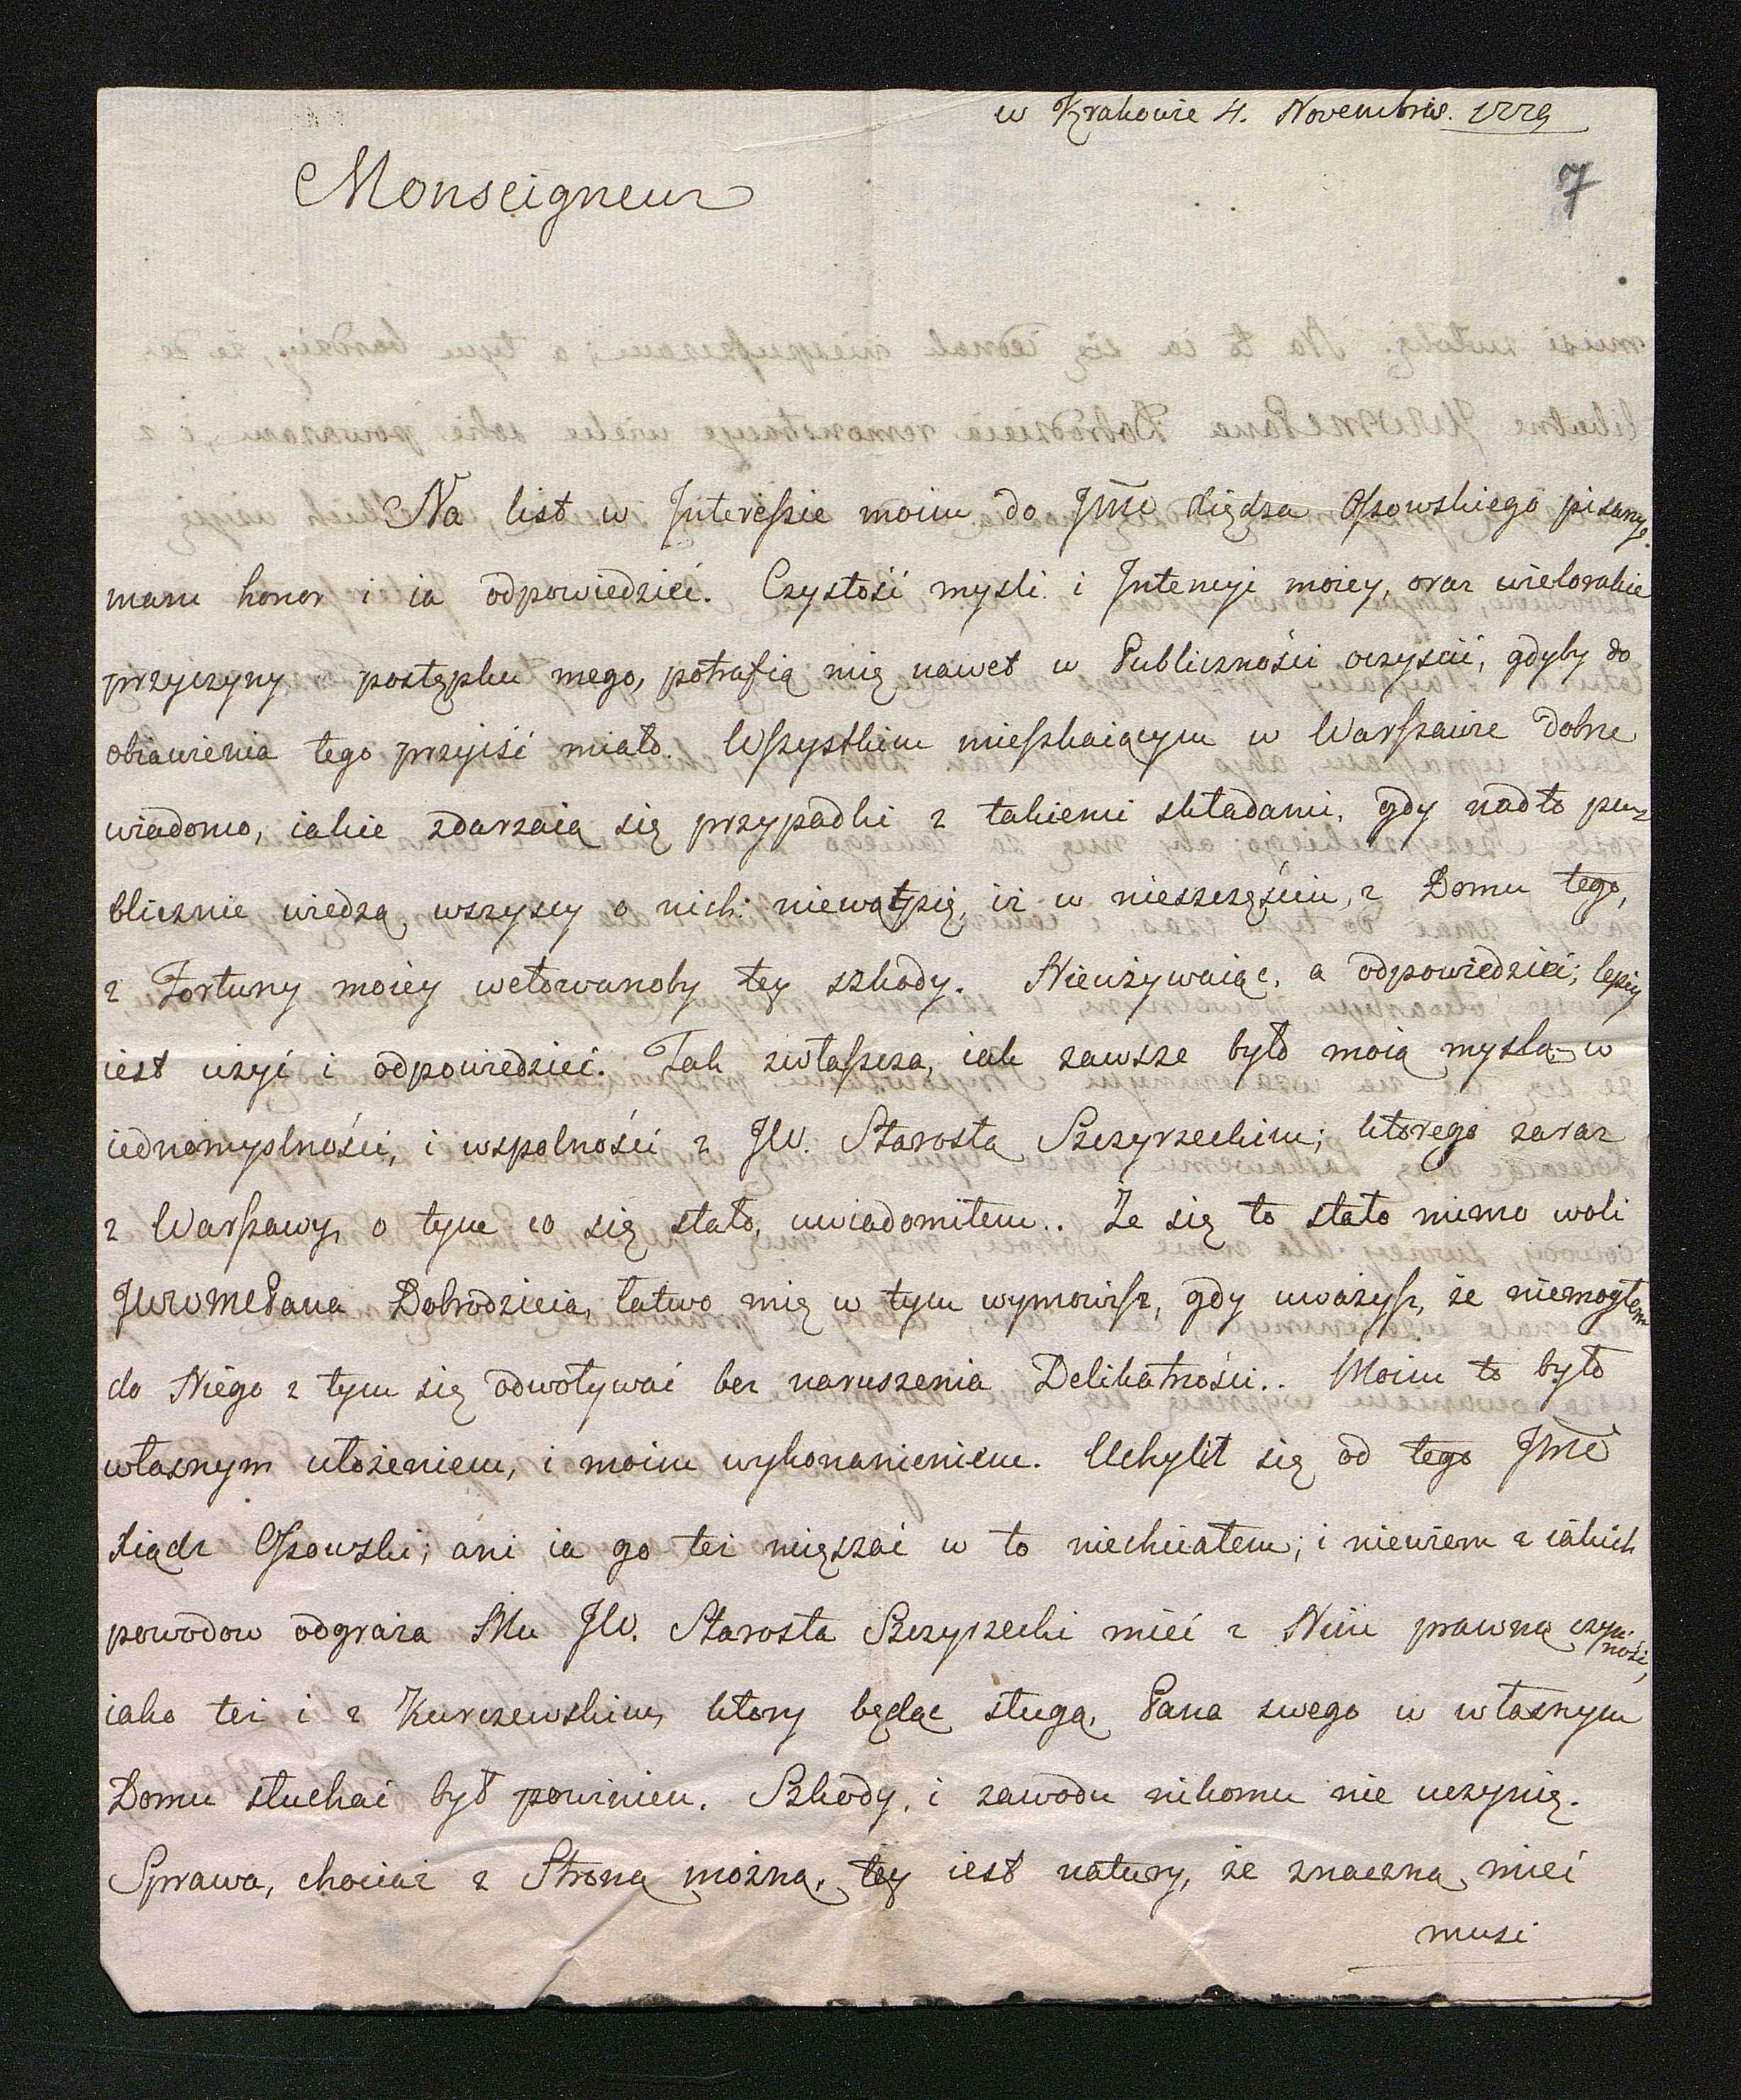 w Krakowie 4. Novembris. 1779
7
Monseigneur
Na list w Interessie moim do Jmć Xiędza Ossowskiego pisany,
mam honor i ia odpowiedzieć. Czystość mysli i Intencyi moiey, oraz wielorakie
przyczyny postępku mego, potrafią mię nawet w Publiczności oczyscić, gdyby do
obiawienia tego przyiść miało. Wszystkim mieszkaiącym w Warszawie dobrze
wiadomo, iakie zdarzaią się przypadki z takiemi składami, gdy nadto pu=
blicznie wiedzą wszyscy o nich: niewątpię, iż w nieszczęściu, z Domu tego,
z Fortuny moiey wetowanoby tey szkody. Nieużywaiąc, a odpowiedzieć; lepiey
iest użyć i odpowiedzieć. Tak zwłaszcza, iak zawsze było moią myslą w
iednomyslności, i wspolności z JW. Starostą Szczyrzeckim; ktorego zaraz
z Warszawy, o tym co się stało, uwiadomiłem.. Że się to stało mimo woli
JWWMcPana Dobrodzieia, łatwo mię w tym wymowisz, gdy uważysz, że niemogłem
do Niego z tym się odwoływać bez naruszenia Delikatności.. Moim to było
własnym ułożeniem, i moim wykonanieniem. Uchylił się od tego Jmć
Xiądz Ossowski; ani ia go też mięszać w to niechciałem; i niewiem z iakich
powodow odgraża Mu JW. Starosta Szczyrzecki mieć z Nim prawną czyn=
ność,
iako też i z Kurczewskim, ktory będąc sługą, Pana swego w własnym
Domu słuchać był powinien. Szkody, i zawodu nikomu nie uczynię.
Sprawa, chociaż z Stroną możną, tey iest natury, że znaczną mieć
musi